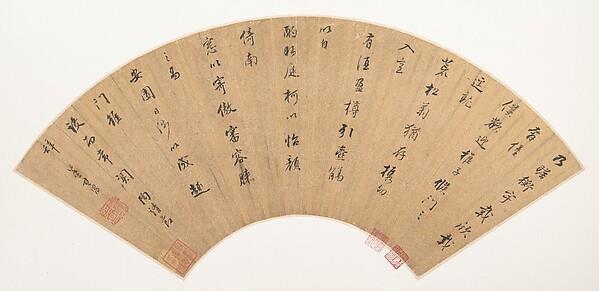 乃瞻衡宇載欣載
奔僮
僕歡迎稚子候門三
逕就
荒松菊猶存攜幼
入室
有酒盈樽引壺觴
以自
酌眄庭柯以怡顏
倚南
窗以寄傲審容膝
之易
安園日涉以成趣
門雖
設而常關 陶靖節
辭 董其昌